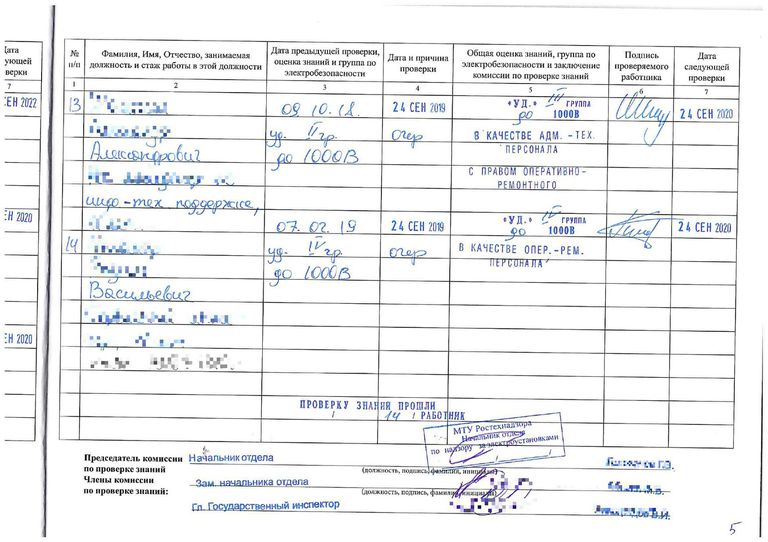 Дата
ующей
верки
7
СЕН 2022
ЕН 2020
ЕН 2020
№ п/п
Фамилия, Имя, Отчество, занимаемая должность и стаж работы в этой должности
Дата предыдущей проверки, оценка знаний и группа по электробезопасности
Дата и причина проверки
Общая оценка знаний, группа по электробезопасности и заключение комиссии по проверке знаний
Подпись проверяемого работника
Дата следующей проверки
1 2 3 4 5 6 7
13 09.10.18. 24 СЕН 2019 "УД." III ГРУППА 24 СЕН 2020
до 1000В
уд. II гр. очер В КАЧЕСТВЕ АДМ.-ТЕХ.
Александрович до 1000В ПЕРСОНАЛА
С ПРАВОМ ОПЕРАТИВНО-
РЕМОНТНОГО
тех. поддержке,
07.02.19 24 СЕН 2019 "УД." IV ГРУППА 24 СЕН 2020
до 1000В
14 уд. IV гр. очер В КАЧЕСТВЕ ОПЕР.-РЕМ.
до 1000В ПЕРСОНАЛА
Васильевич
ПРОВЕРКУ ЗНАНИЙ ПРОШЛИ
/ 14 / РАБОТНИК
МТУ Ростехнадзора
Начальник отдела
по надзору за электроустановками
Председатель комиссии Начальник отдела
по проверке знаний (должность, подпись, фамилия, инициалы)
Члены комиссии Зам. начальника отдела
по проверке знаний: (должность, подпись, фамилия, инициалы)
Гл. Государственный инспектор
5